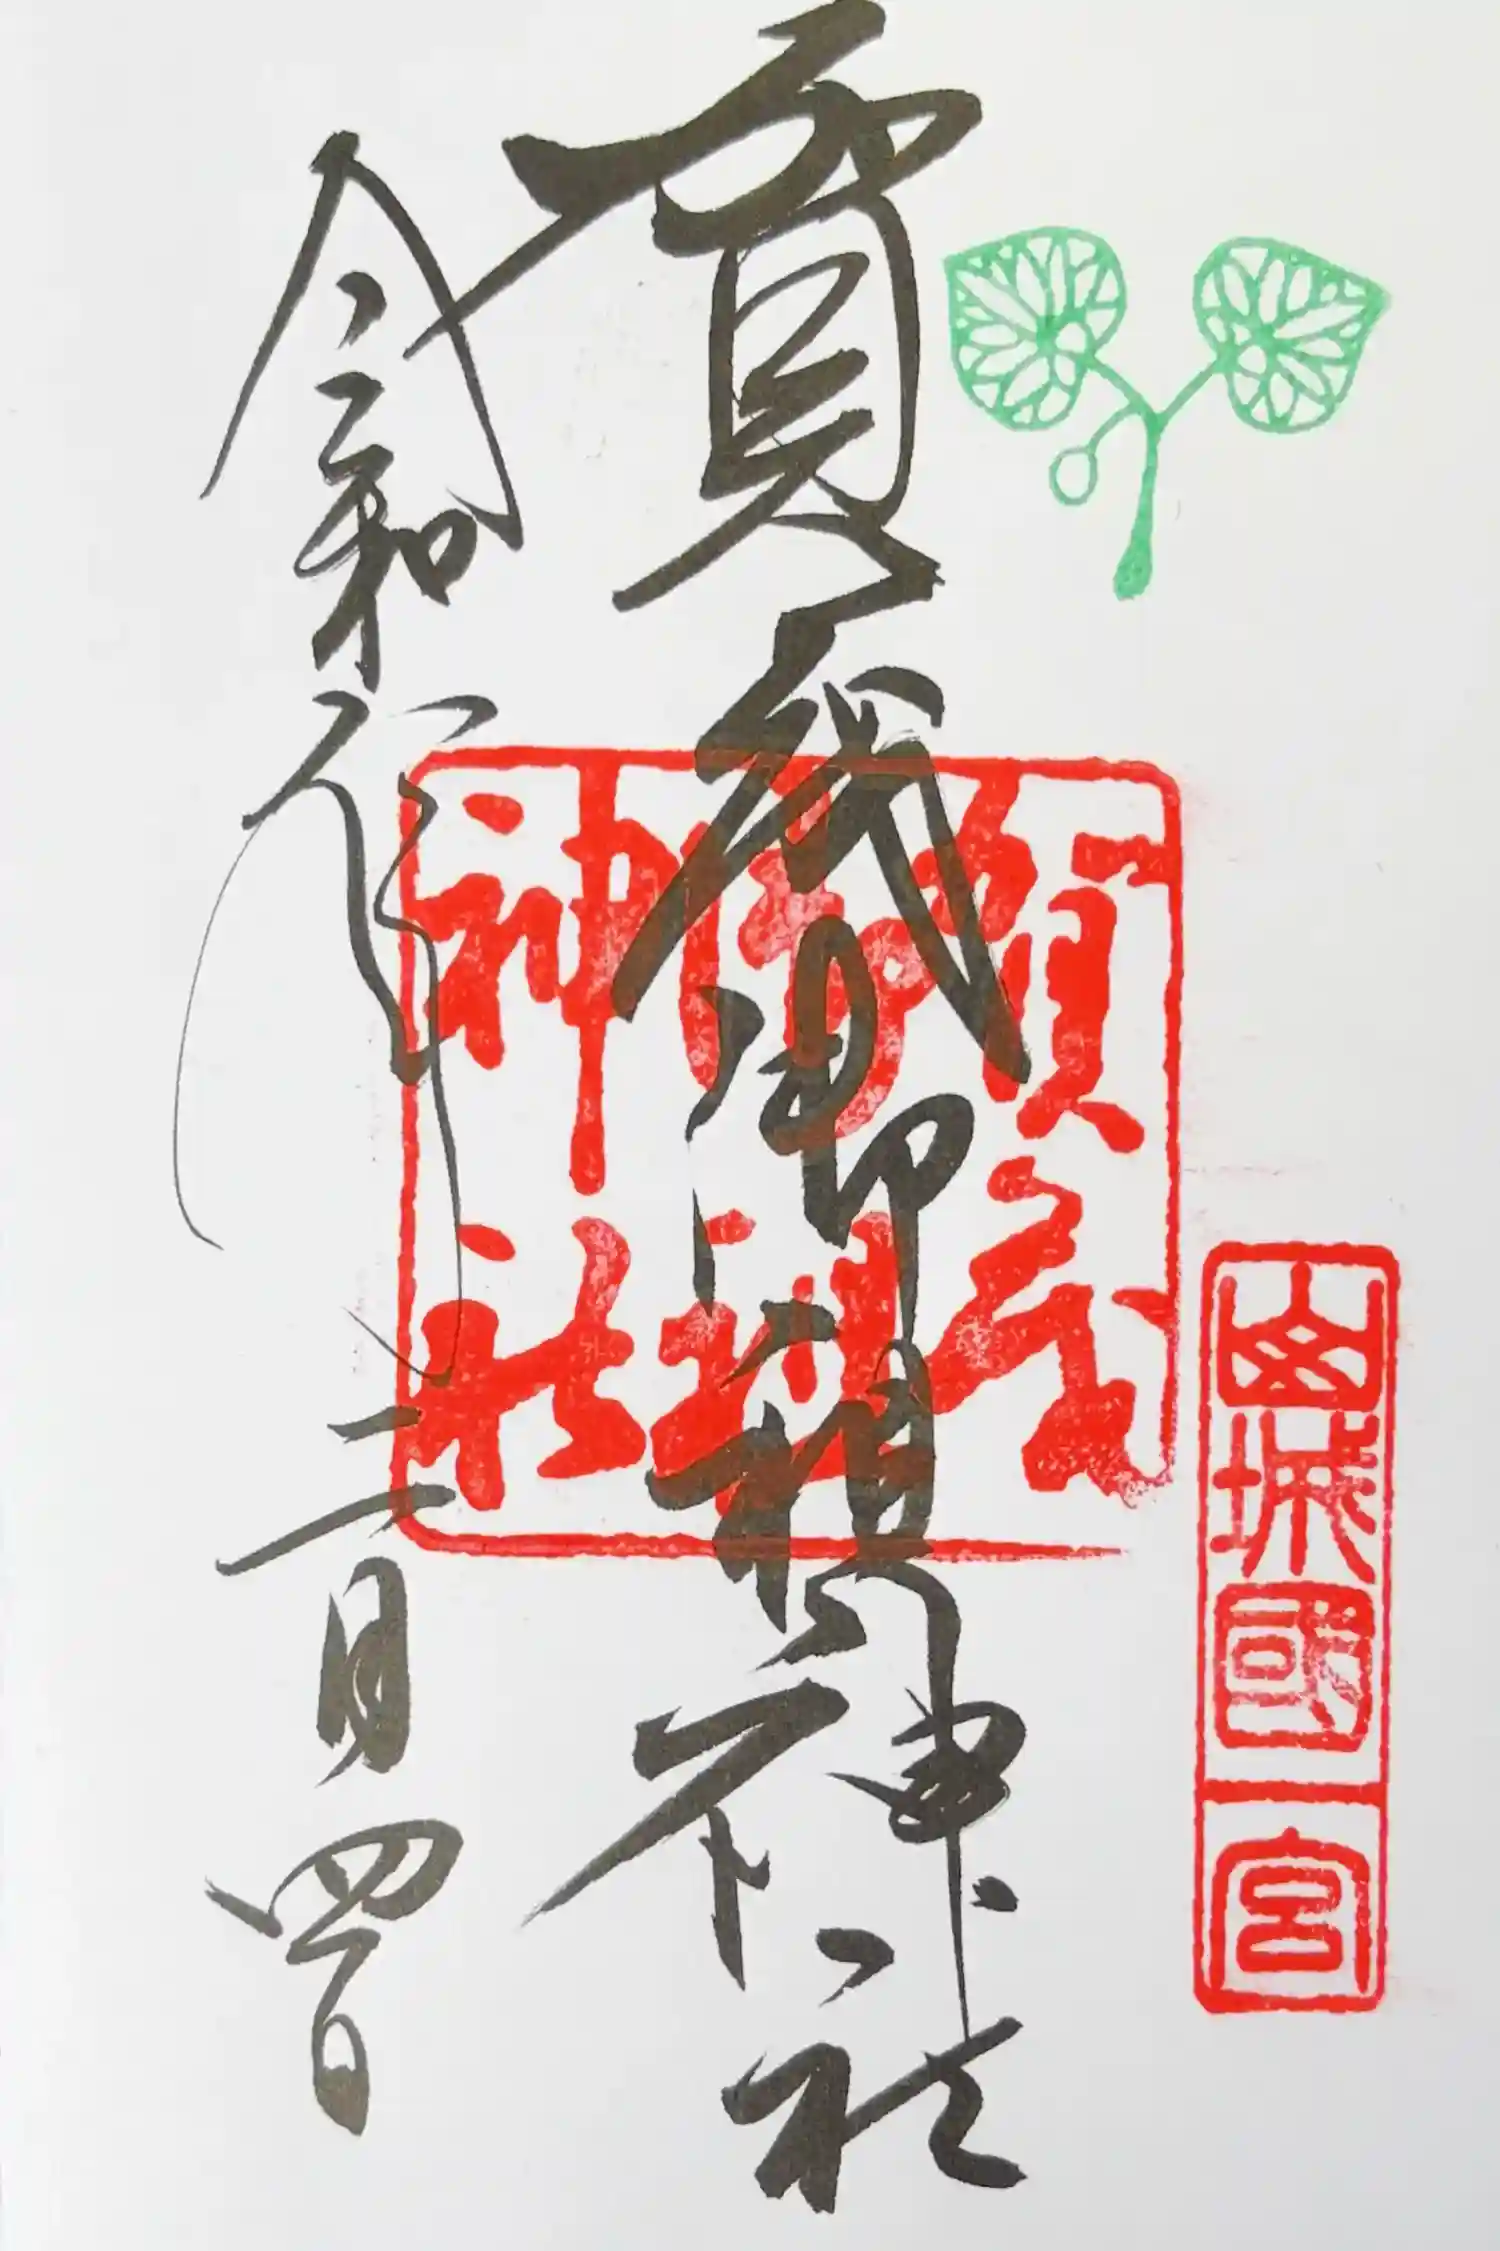 山城國一宮
賀茂
御祖
神社
賀茂御祖神社
令和 二月四日